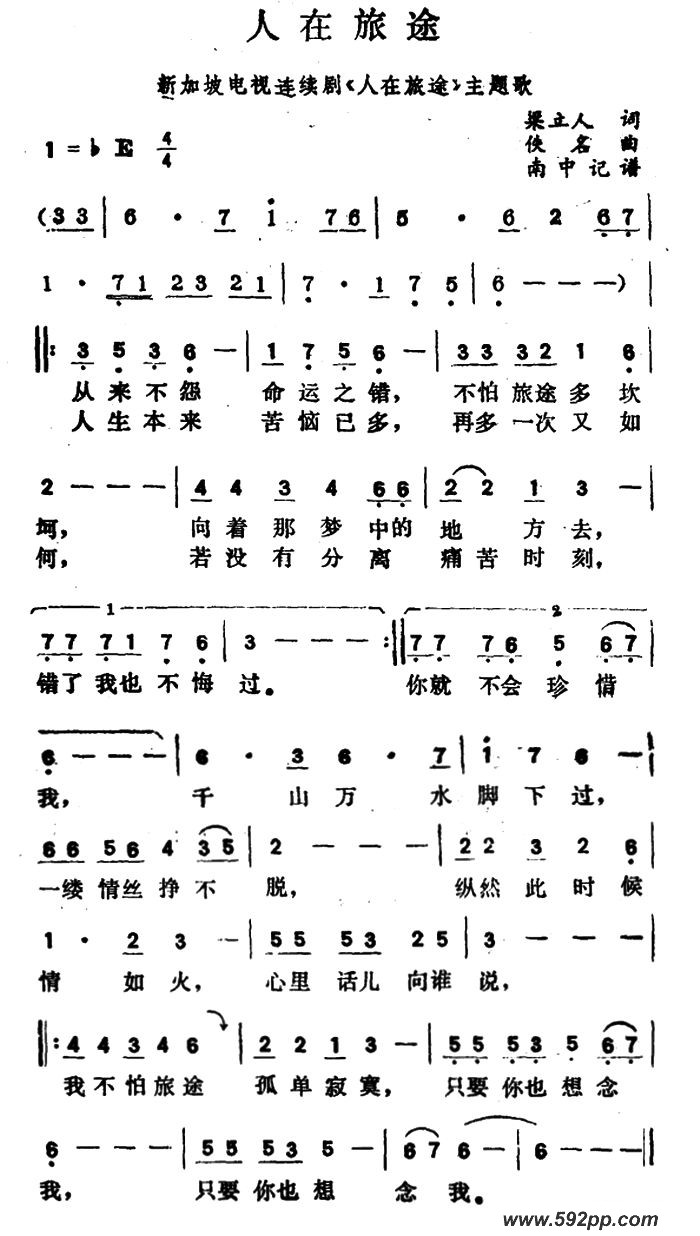 人在旅途
新加坡电视连续剧《人在旅途》主题歌
梁立人 词
1=♭E 4/4 佚名 曲
南中记谱
(3 3 | 6 · 7 i 7 6 | 5 · 6 2 6 7 |
1 · 7 1 2 3 2 1 | 7 · 1 7 5 | 6 – – –) |
‖: 3 5 3 6 – | 1 7 5 6 – | 3 3 3 2 1 6 |
从来不怨 命运之错, 不怕旅途多坎
人生本来 苦恼已多, 再多一次又如
2 – – – | 4 4 3 4 6 6 | 2 2 1 3 – |
坷, 向着那梦中的 地方去,
何, 若没有分离 痛苦时刻,
1 2
7 7 7 1 7 6 | 3 – – – :‖ 7 7 7 6 5 6 7 |
错了我也不悔 过。 你就不会珍惜
6 – – – | 6 · 3 6 · 7 | i 7 6 – |
我, 千山万水脚下过,
6 6 5 6 4 3 5 | 2 – – – | 2 2 3 2 6 |
一缕情丝挣不 脱, 纵然此时候
1 · 2 3 – | 5 5 5 3 2 5 | 3 – – – |
情如火, 心里话儿向谁 说,
‖: 4 4 3 4 6 | 2 2 1 3 – | 5 5 5 3 5 6 7 |
我不怕旅途 孤单寂寞, 只要你也想念
6 – – – | 5 5 5 3 5 – | 6 7 6 – | 6 – – – ‖
我, 只要你也想 念我。
www.592pp.com